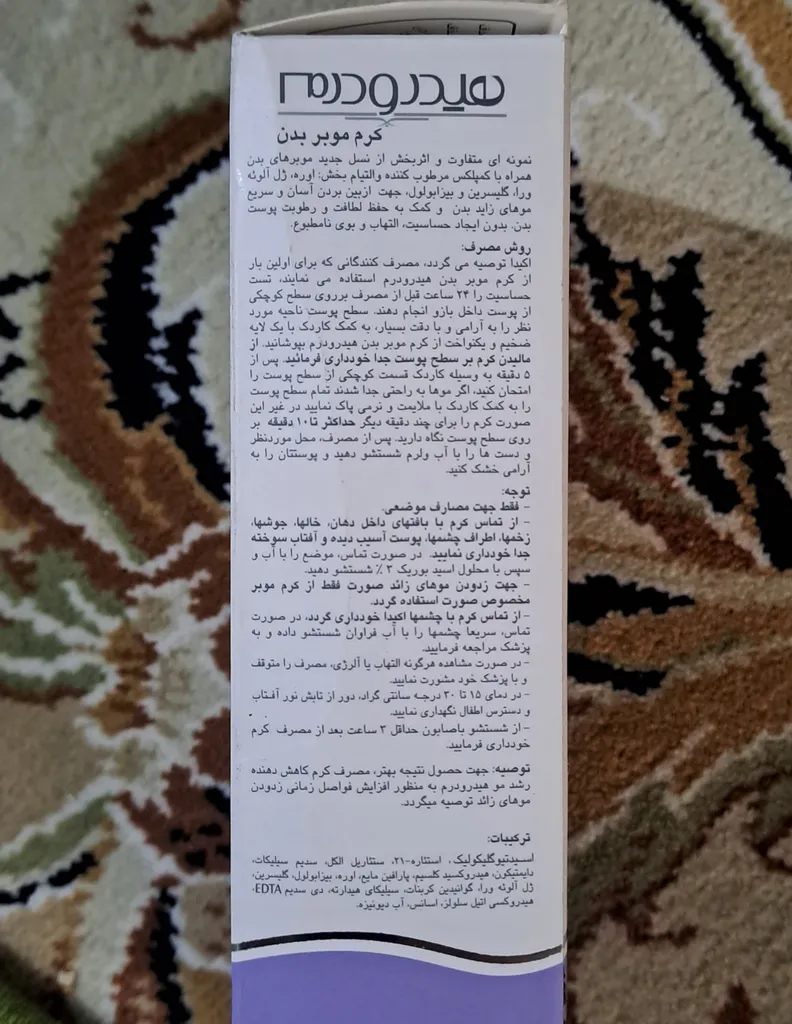 هیدرودرم
کرم موبر بدن
نمونه ای متفاوت و اثربخش از نسل جدید موبرهای بدن
همراه با کمپلکس مرطوب کننده والتیام بخش: اوره، ژل آلوئه
ورا، گلیسرین و بیزابولول، جهت ازبین بردن آسان و سریع
موهای زاید بدن و کمک به حفظ لطافت و رطوبت پوست
بدن. بدون ایجاد حساسیت، التهاب و بوی نامطبوع.
روش مصرف:
اکیدا توصیه می گردد، مصرف کنندگانی که برای اولین بار
از کرم موبر بدن هیدرودرم استفاده می نمایند، تست
حساسیت را ۲۴ ساعت قبل از مصرف برروی سطح کوچکی
از پوست داخل بازو انجام دهند. سطح پوست ناحیه مورد
نظر را به آرامی و با دقت بسیار، به کمک کاردک با یک لایه
ضخیم و یکنواخت از کرم موبر بدن هیدرودرم بپوشانید. از
مالیدن کرم بر سطح پوست جدا خودداری فرمائید. پس از
۵ دقیقه به وسیله کاردک قسمت کوچکی از سطح پوست را
امتحان کنید، اگر موها به راحتی جدا شدند تمام سطح پوست
را به کمک کاردک با ملایمت و نرمی پاک نمایید در غیر این
صورت کرم را برای چند دقیقه دیگر حداکثر تا ۱۰ دقیقه بر
روی سطح پوست نگاه دارید. پس از مصرف، محل موردنظر
و دست ها را با آب ولرم شستشو دهید و پوستتان را به
آرامی خشک کنید.
توجه:
- فقط جهت مصارف موضعی.
- از تماس کرم با بافتهای داخل دهان، خالها، جوشها،
زخمها، اطراف چشمها، پوست آسیب دیده و آفتاب سوخته
جدا خودداری نمایید. در صورت تماس، موضع را با آب و
سپس با محلول اسید بوریک ۲٪ شستشو دهید.
- جهت زدودن موهای زائد صورت فقط از کرم موبر
مخصوص صورت استفاده گردد.
- از تماس کرم با چشمها اکیدا خودداری گردد، در صورت
تماس، سریعا چشمها را با آب فراوان شستشو داده و به
پزشک مراجعه فرمایید.
- در صورت مشاهده هرگونه التهاب یا آلرژی، مصرف را متوقف
و با پزشک خود مشورت نمایید.
- در دمای ۱۵ تا ۳۰ درجه سانتی گراد، دور از تابش نور آفتاب
و دسترس اطفال نگهداری نمایید.
- از شستشو باصابون حداقل ۳ ساعت بعد از مصرف کرم
خودداری فرمایید.
توصیه: جهت حصول نتیجه بهتر، مصرف کرم کاهش دهنده
رشد مو هیدرودرم به منظور افزایش فواصل زمانی زدودن
موهای زائد توصیه میگردد.
ترکیبات:
اسیدتیوگلیکولیک، استئاره-۲۱، ستئاریل الکل، سدیم سیلیکات،
دایمتیکون، هیدروکسید کلسیم، پارافین مایع، اوره، بیزابولول، گلیسرین،
ژل آلوئه ورا، گوانیدین کربنات، سیلیکای هیدراته، دی سدیم EDTA،
هیدروکسی اتیل سلولز، اسانس، آب دیونیزه.